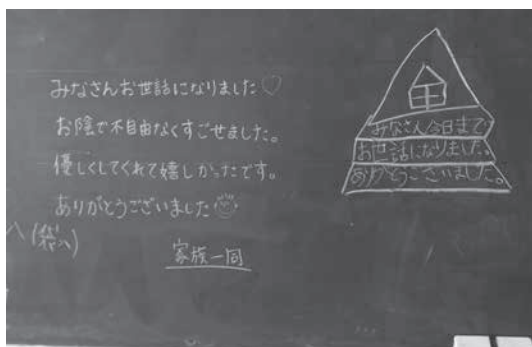 みなさんお世話になりました♡
お陰で不自由なくすごせました。
優しくしてくれて嬉しかったです。
ありがとうございました
家族一同
みなさん今日まで
お世話になりました。
ありがとうございました。